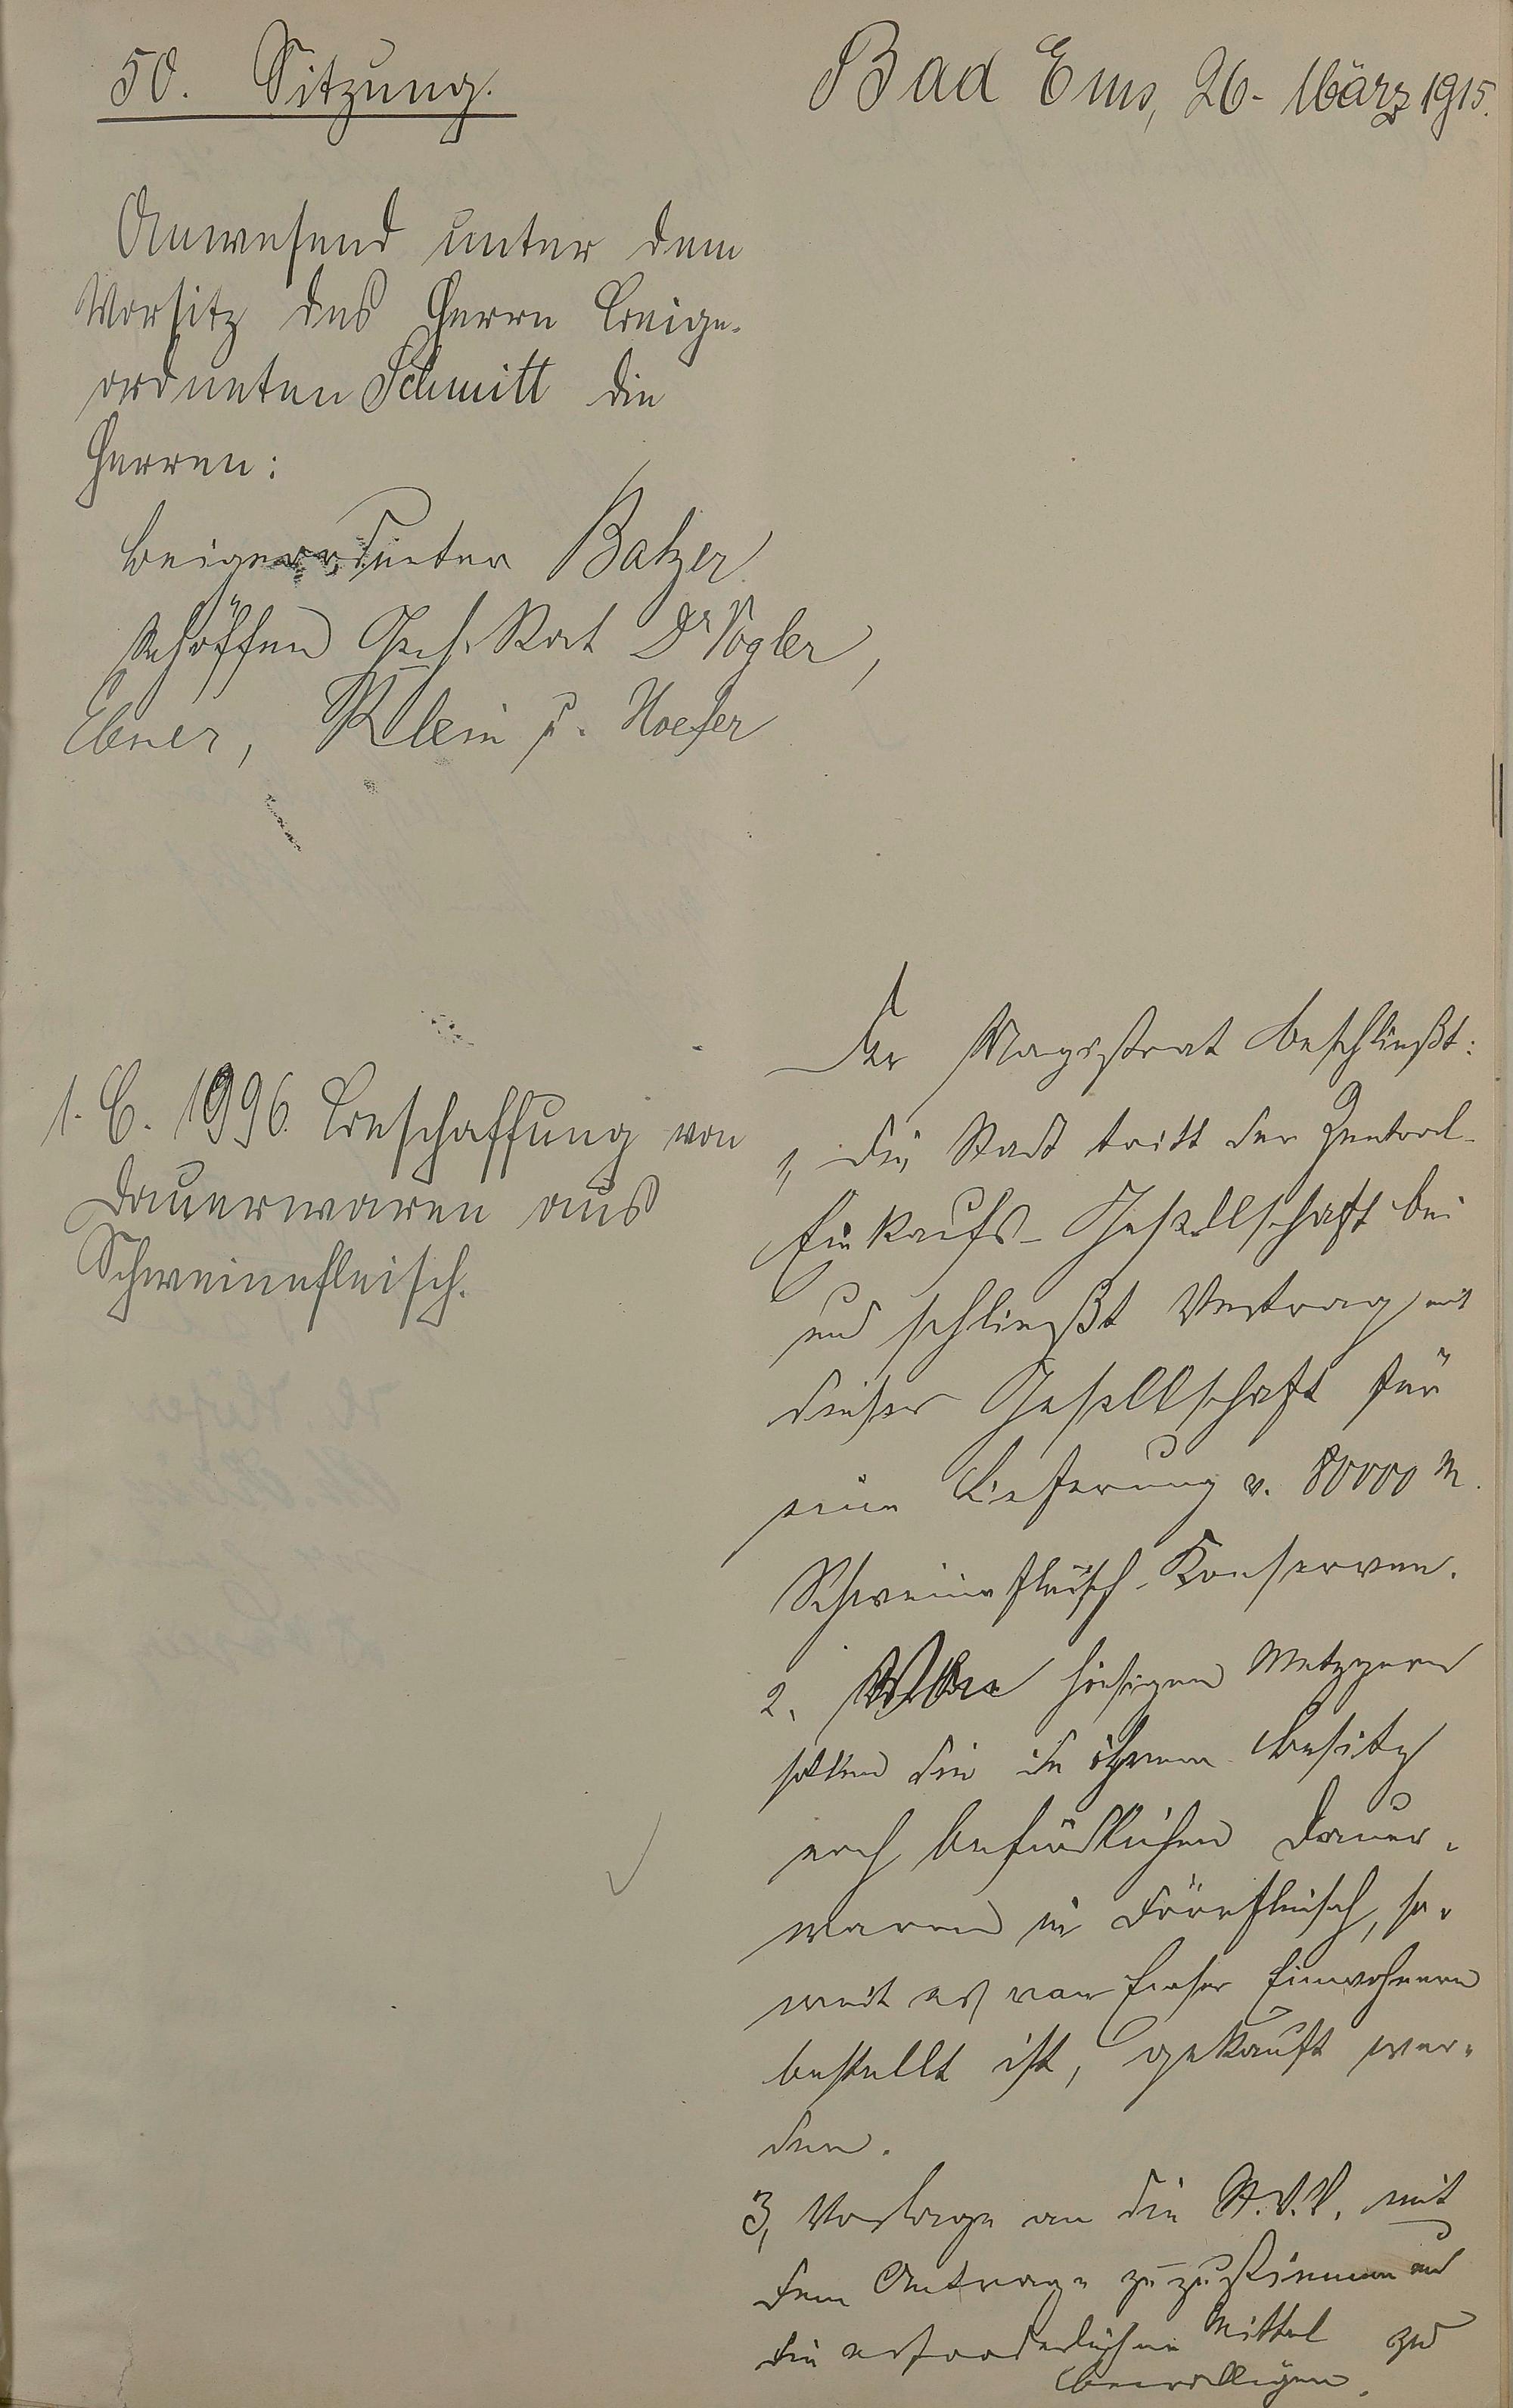 50. Sitzung.
Bad Ems, 26. März 1915.
Anwesend unter dem
Vorsitz des Herrn Beige-
ordneten Schmitt die
Herren:
Beigeordneter Balzer
Schöffen Geh. Rat Dr Vogler,
Ebner, Klein u. Hoefer
1. C. 1996. Beschaffung von
Dauerwaren aus
Schweinefleisch.
Der Magistrat beschließt:
1, Die Stadt tritt der Zentral-
Einkaufs-Gesellschaft bei
und schließt Vertrag mit
dieser Gesellschaft für
eine Lieferung v. 80000 M.
Schweinefleisch-Konserven.
2. Von hiesigen Metzgern
sollen die in ihrem Besitz
noch befindlichen Dauer-
waren in Dörrfleisch, so-
weit es von hieser Einwohnern
bestellt ist, gekauft wer-
den.
3, Vorlage an die St.V.V. mit
dem Antrage zuzustimmen und
die erforderlichen Mittel zu
bewilligen.